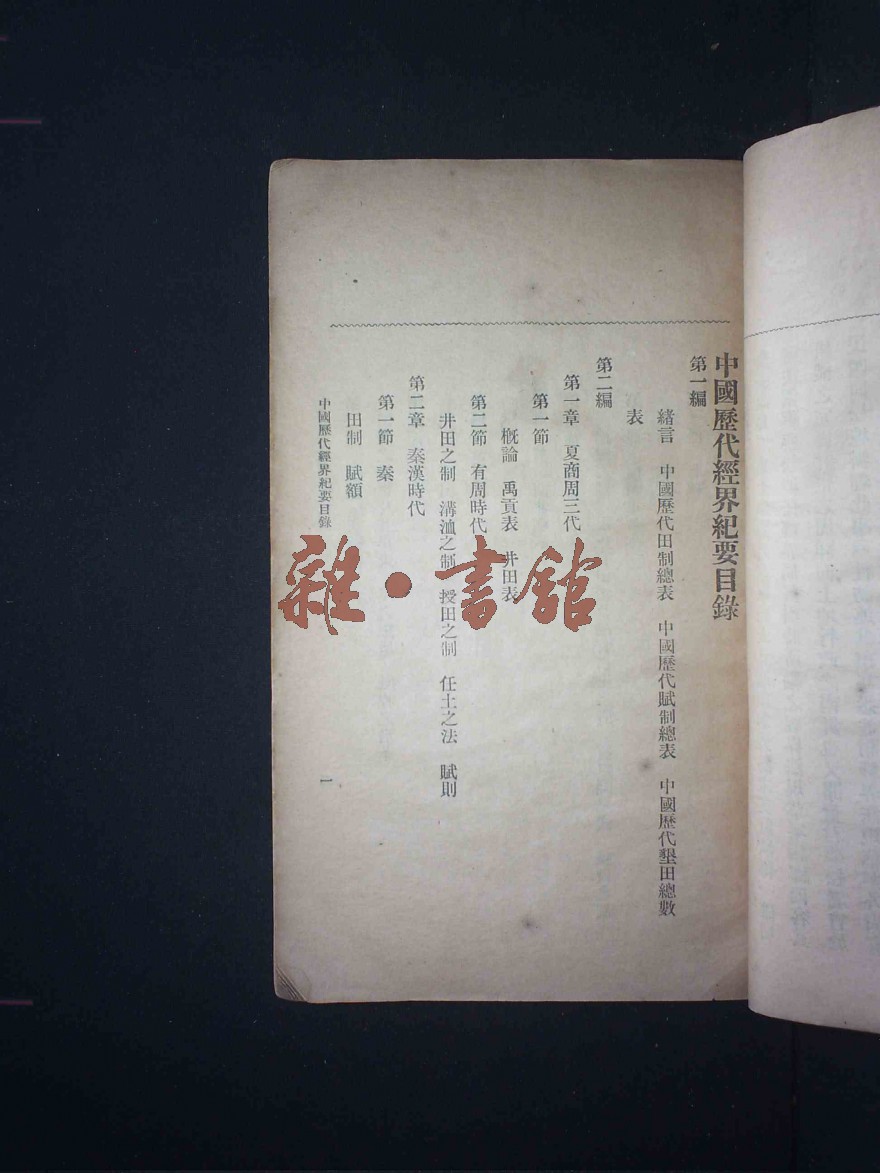 中國歷代經界紀要目錄
第一編
緒言　中國歷代田制總表　中國歷代賦制總表　中國歷代墾田總數
表
第二編
第一章　夏商周三代
第一節
概論　禹貢表　井田表
第二節　有周時代
井田之制　溝洫之制　授田之制　任土之法　賦則
第二章　秦漢時代
第一節　秦
田制　賦額
中國歷代經界紀要目錄
一
雜·書館